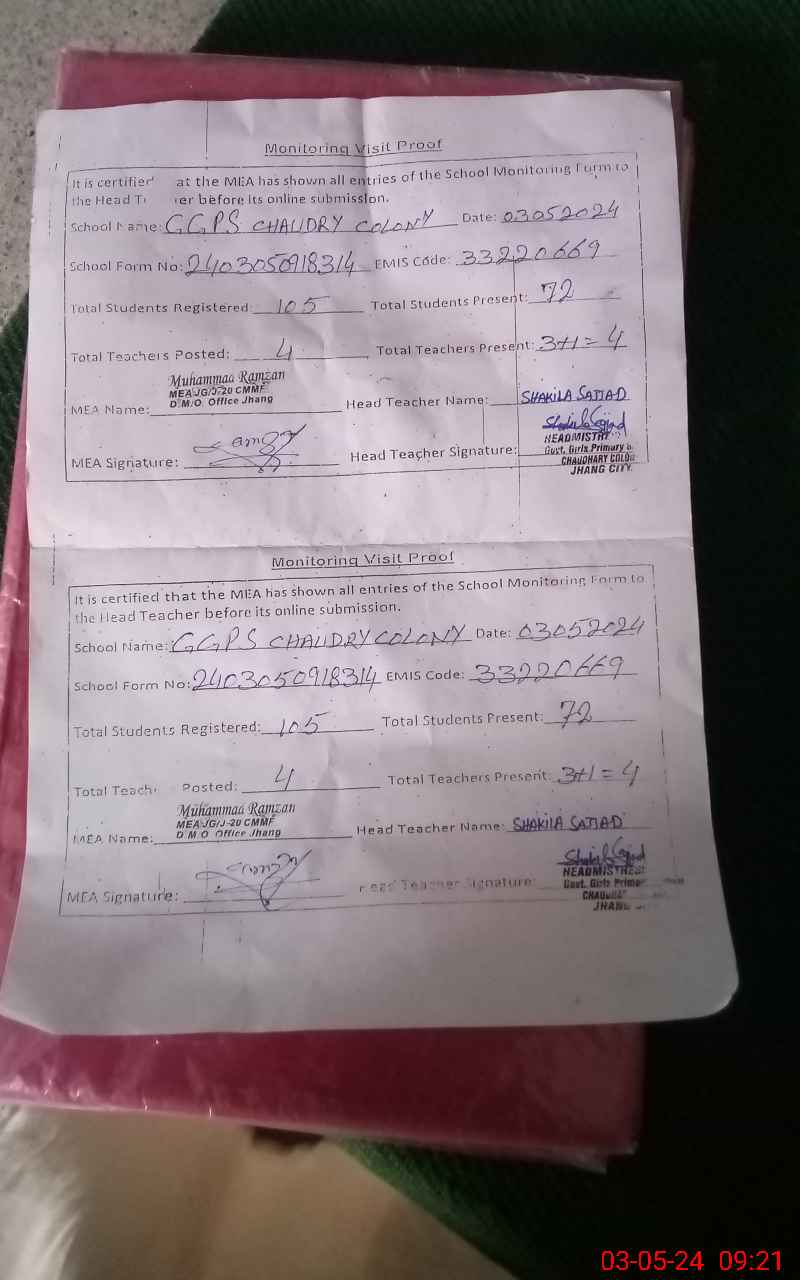 Monitoring Visit Proof
It is certified at the MEA has shown all entries of the School Monitoring Form to
the Head T er before its online submission.
School Name: GGPS CHAUDRY COLONY Date: 03052024
School Form No: 2403050918314 EMIS Code: 33220669
Total Students Registered: 105 Total Students Present: 72
Total Teachers Posted: 4 Total Teachers Present: 3+1=4
Muhammad Ramzan
MEA JG/J-20 CMMF
D.M.O. Office Jhang
MEA Name: Head Teacher Name: SHAKILA SAJJAD
MEA Signature: Head Teacher Signature: Shakila Sajjad
HEADMISTR
Govt. Girls Primary
CHAUDHARY COLO
JHANG CITY.
Monitoring Visit Proof
It is certified that the MEA has shown all entries of the School Monitoring Form to
the Head Teacher before its online submission.
School Name: GGPS CHAUDRY COLONY Date: 03052024
School Form No: 2403050918314 EMIS Code: 33220669
Total Students Registered: 105 Total Students Present: 72
Total Teach Posted: 4 Total Teachers Present: 3+1=4
Muhammad Ramzan
MEA JG/J-20 CMMF
D.M.O. Office Jhang
MEA Name: Head Teacher Name: SHAKILA SAJJAD
MEA Signature: Head Teacher Signature: Shakila Sajjad
HEADMISTRESS
Govt. Girls Prima
JHANG
03-05-24 09:21